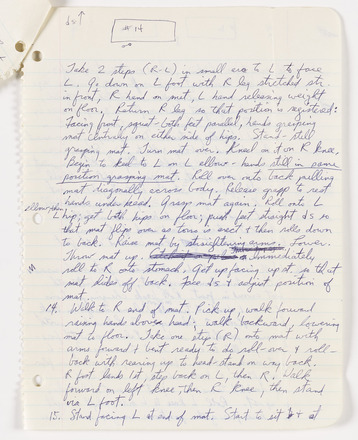 ds↑
#14
Take 2 steps (R-L) in small arc to L to face
L. Go down on L foot with R leg stretched str.
in front, R hand on mat, L hand releasing weight
on floor. Return R leg so that position is registered:
Facing front, squat - both feet parallel, hands grasping
mat on either side of hips. Stand - still
grasping mat. Turn mat over. Kneel on it on R knee.
Begin to to L on L elbow - hands still in same
position grasping mat. Roll over onto back pulling
mat diagonally across body. Release grasp to rest
hands under head. Grasp mat again. Roll onto L
hip; get both hips on floor; push feet straight ds so
that mat flips over as torso is erect & then rolls down
to back. Raise mat by straightening arms. Lower.
Throw mat up. Immediately
roll to R onto stomach. Get up facing up st so that
mat slides off back. Face ds & adjust position of
mat.
14. Walk to R end of mat. Pick up, walk forward
raising hands above head; walk backward, lowering
mat to floor. Take one step (R) onto mat with
arms forward & bent ready to do roll-over & roll-
back with rearing up to head-stand on way back.
R foot lands 1st, step back on L, then R. Walk
forward on left knee, then R knee, then stand
via L foot.
15. Stand facing L at end of mat. Start to sit &